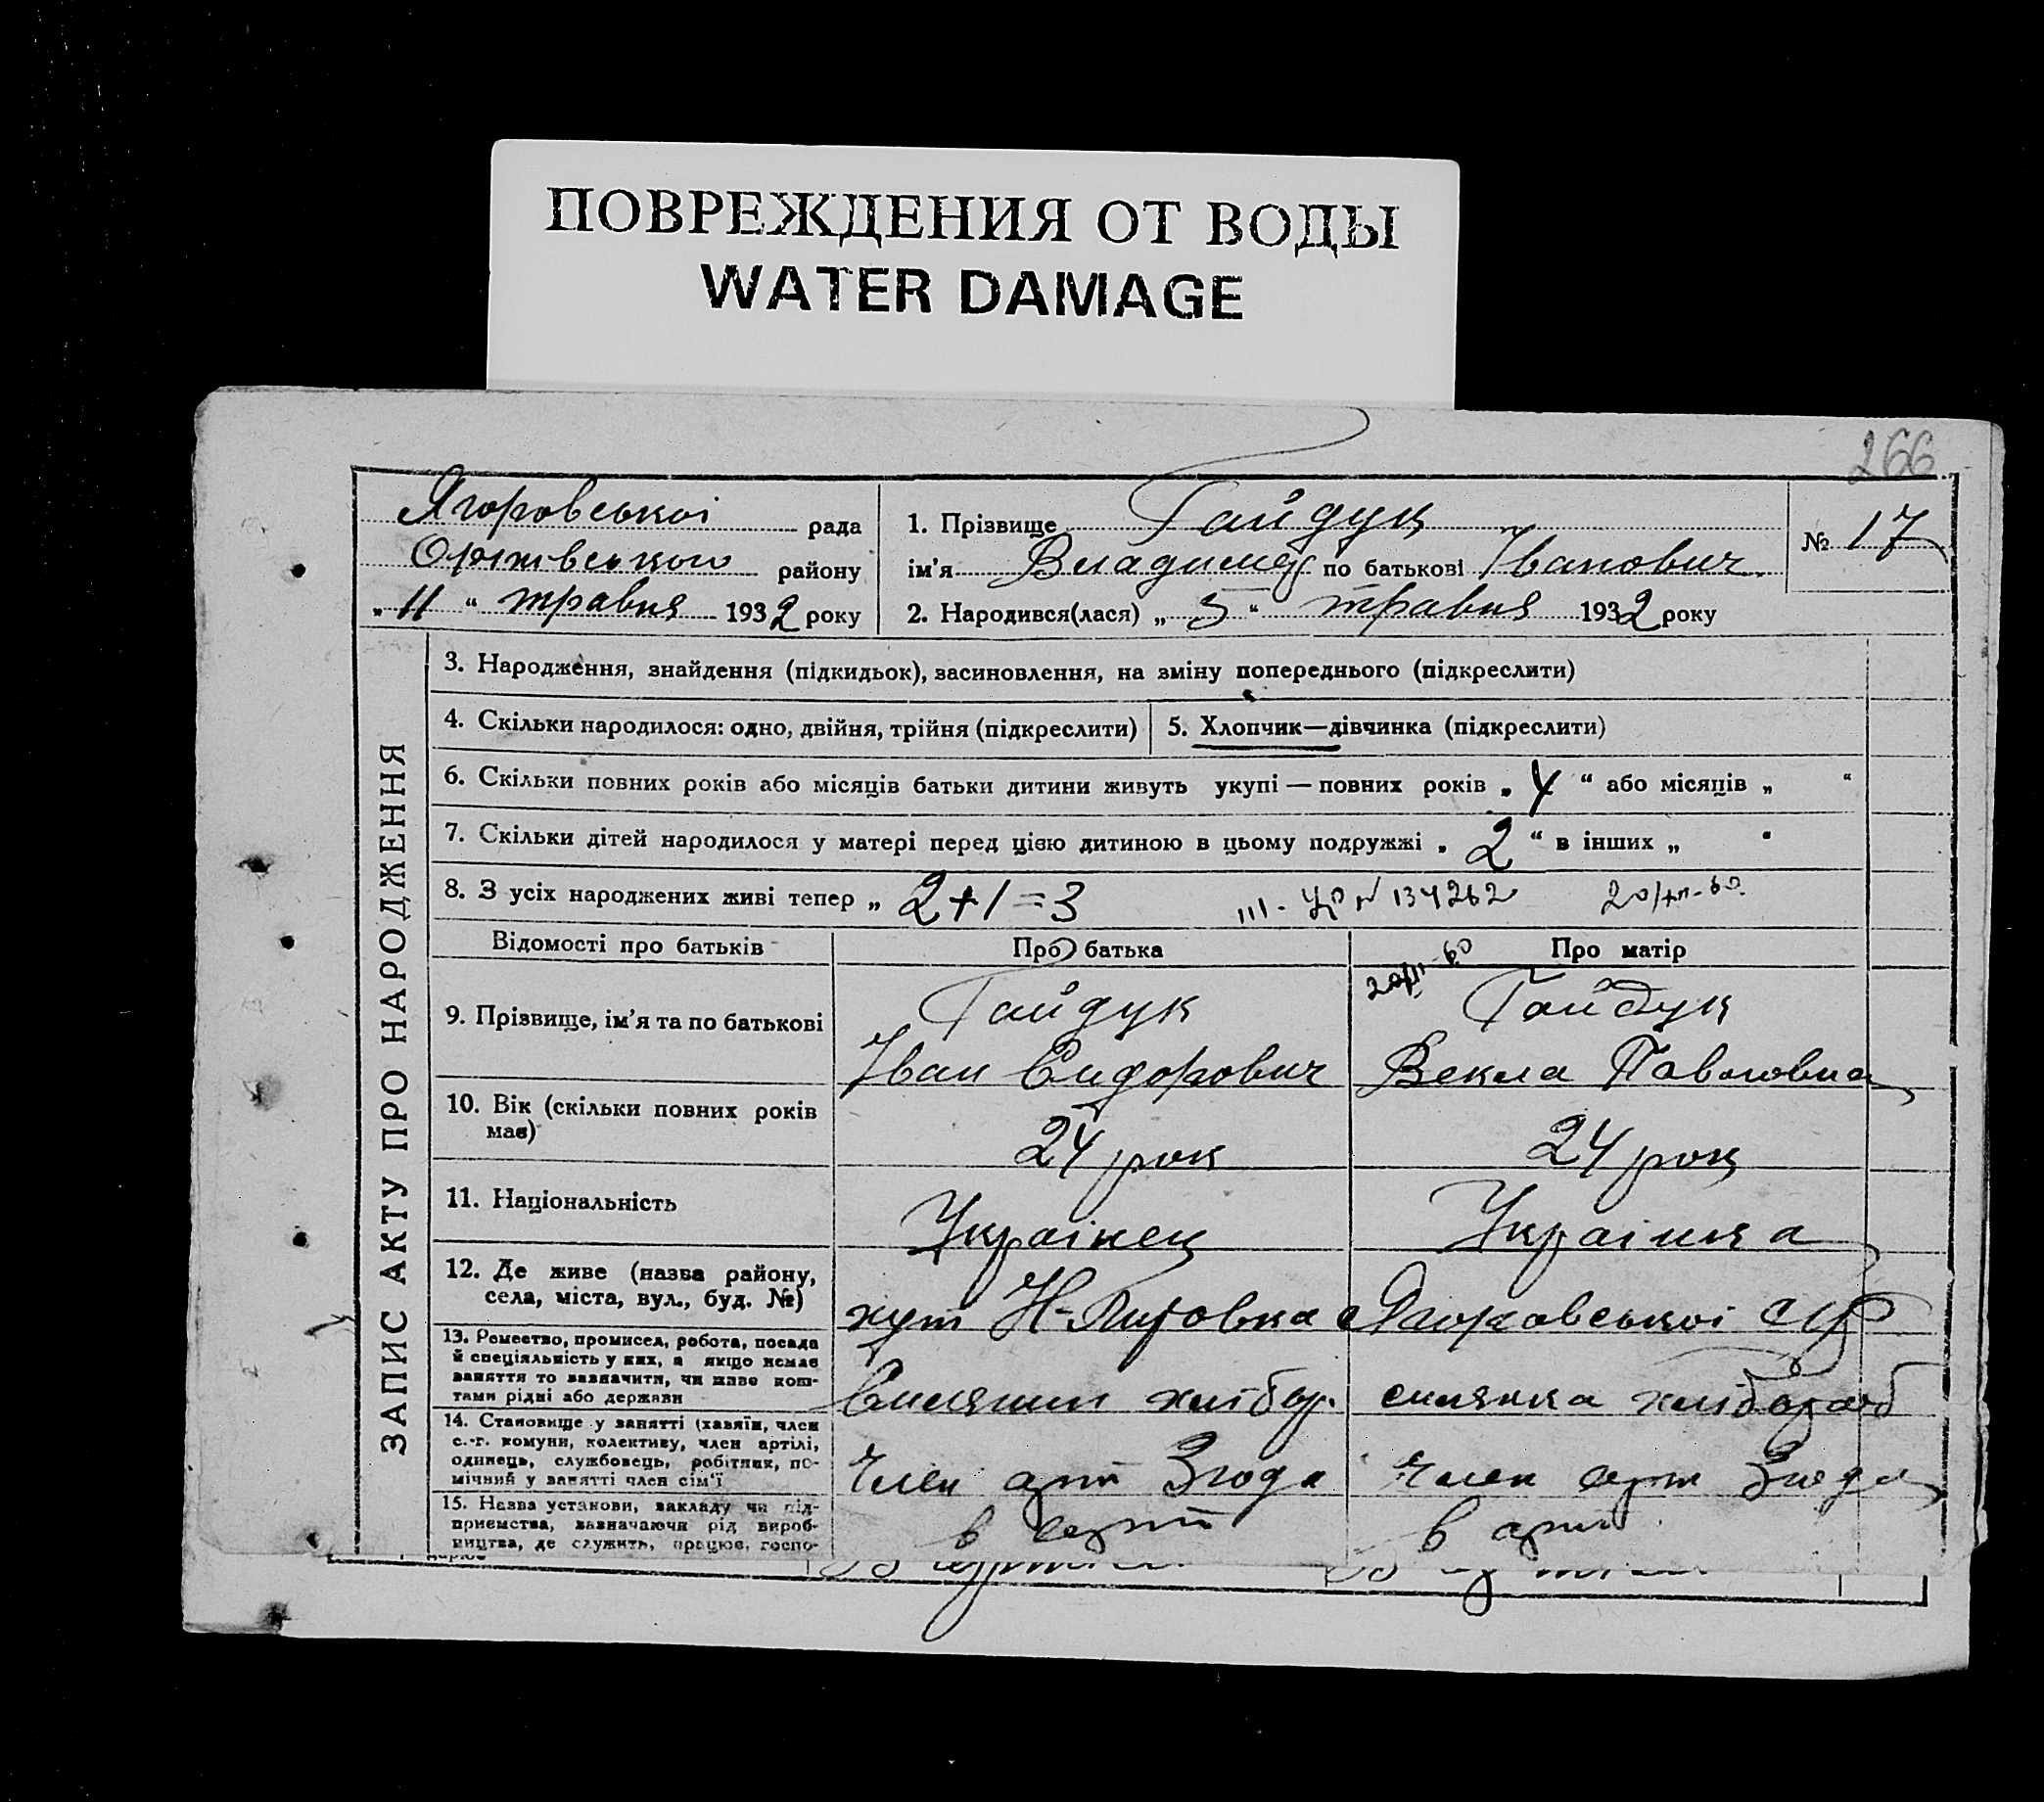 ПОВРЕЖДЕНИЯ ОТ ВОДЫ
WATER DAMAGE
266
Ягоровської рада
району
„ 11 “ травня 1932 року
1. Прізвище Гайдук
ім’я Владимер по батькові Іванович
№ 17
2. Народився(лася) „ 5 “ травня 1932 року
ЗАПИС АКТУ ПРО НАРОДЖЕННЯ
3. Народження, знайдення (підкидьок), засиновлення, на зміну попереднього (підкреслити)
4. Скільки народилося: одно, двійня, трійня (підкреслити)
5. Хлопчик—дівчинка (підкреслити)
6. Скільки повних років або місяців батьки дитини живуть укупі — повних років „ 4 “ або місяців „ “
7. Скільки дітей народилося у матері перед цією дитиною в цьому подружжі „ 2 “ в інших „ “
8. З усіх народжених живі тепер „ 2+1=3
134262
Відомості про батьків
Про батька
Про матір
9. Прізвище, ім’я та по батькові
Гайдук
Іван Сидорович
Гайдук
Векла Павловна
10. Вік (скільки повних років
має)
24 рок
24 рок
11. Національність
Українец
Українка
12. Де живе (назва району,
села, міста, вул., буд. №)
хут
Ягоровської с/р
13. Ремество, промисел, робота, посада
й спеціяльність у них, а якщо немає
заняття то зазначити, чи живе кош-
тами рідні або держави
Силянин хлібор.
силянка хлібороб
14. Становище у занятті (хазяїн, член
с.-г. комуни, колективу, член артілі,
одинець, службовець, робітник, по-
мічний у занятті член сім’ї
Член арт Згода
Член арт Згода
15. Назва установи, закладу чи під-
приємства, зазначаючи рід вироб-
ництва, де служить, працює, госпо-
в арт
в арт